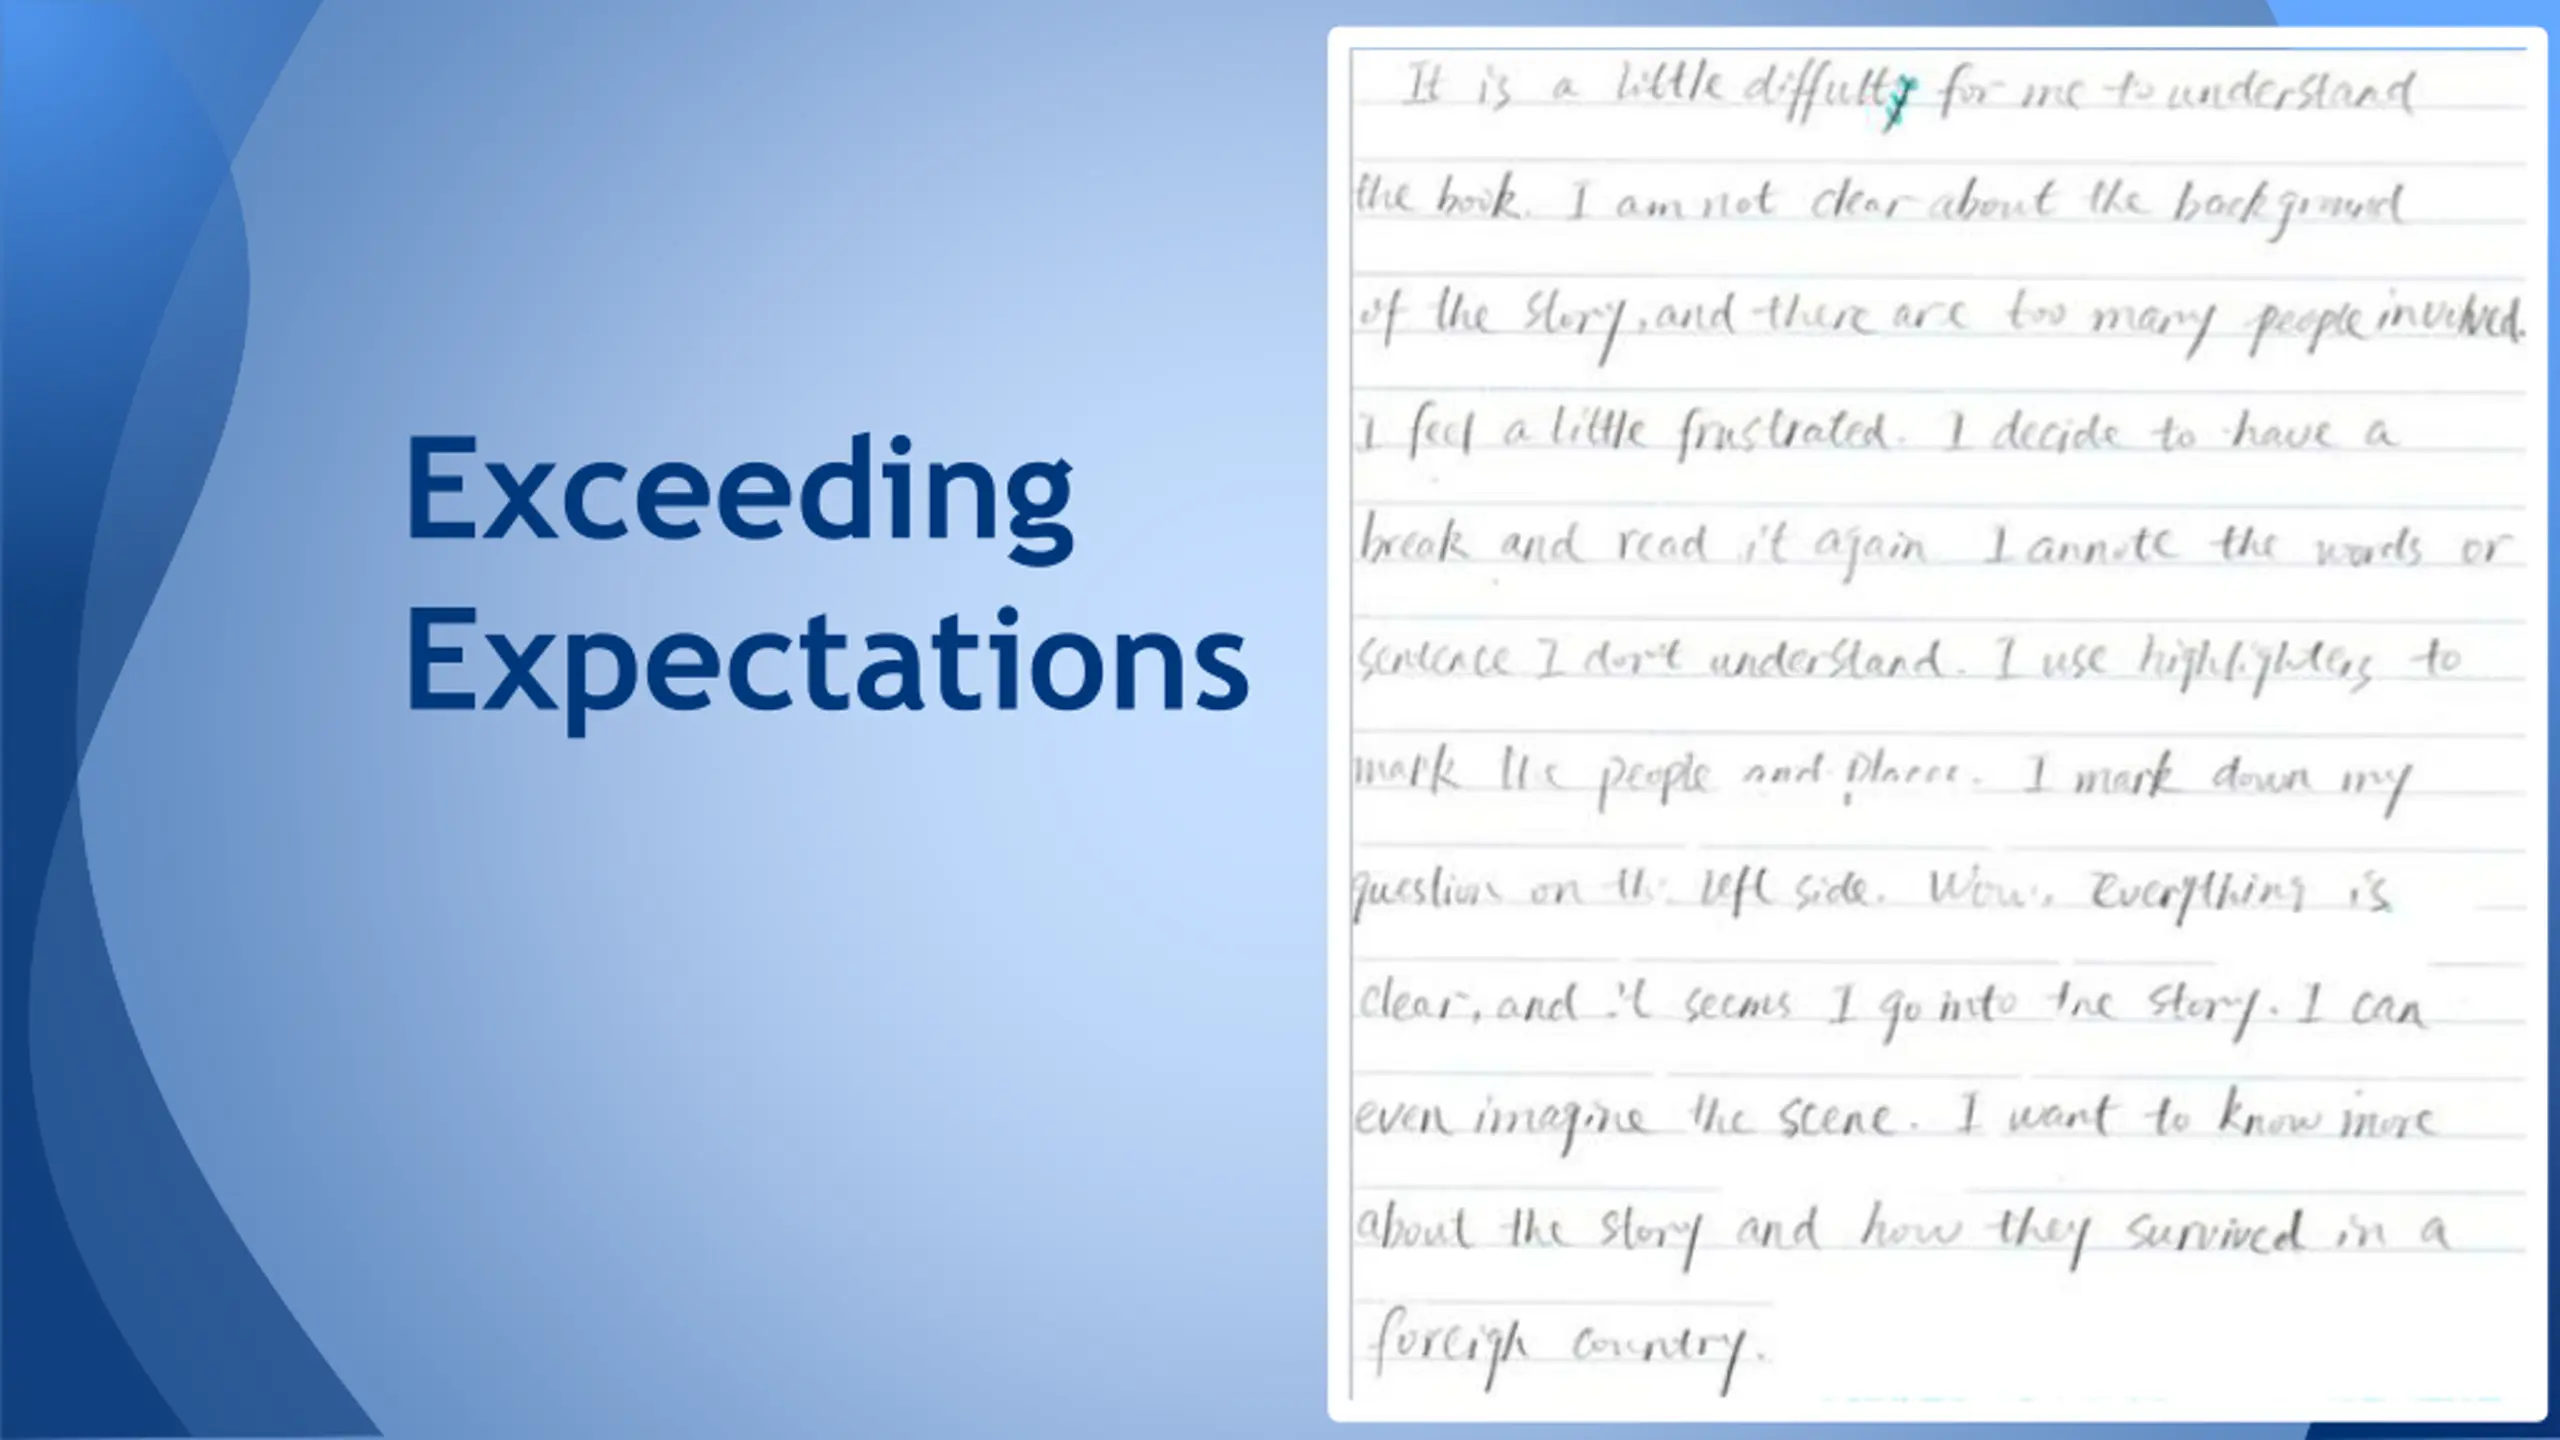 Exceeding
Expectations
It is a little diffulty for me to understand
the book. I am not clear about the background
of the story, and there are too many people involved.
I feel a little frustrated. I decide to have a
break and read it again I annote the words or
sentence I don't understand. I use highlighters to
mark the people and places. I mark down my
question on the left side. Wow, Everything is
clear, and it seems I go into the story. I can
even imagine the scene. I want to know more
about the story and how they survived in a
foreigh country.